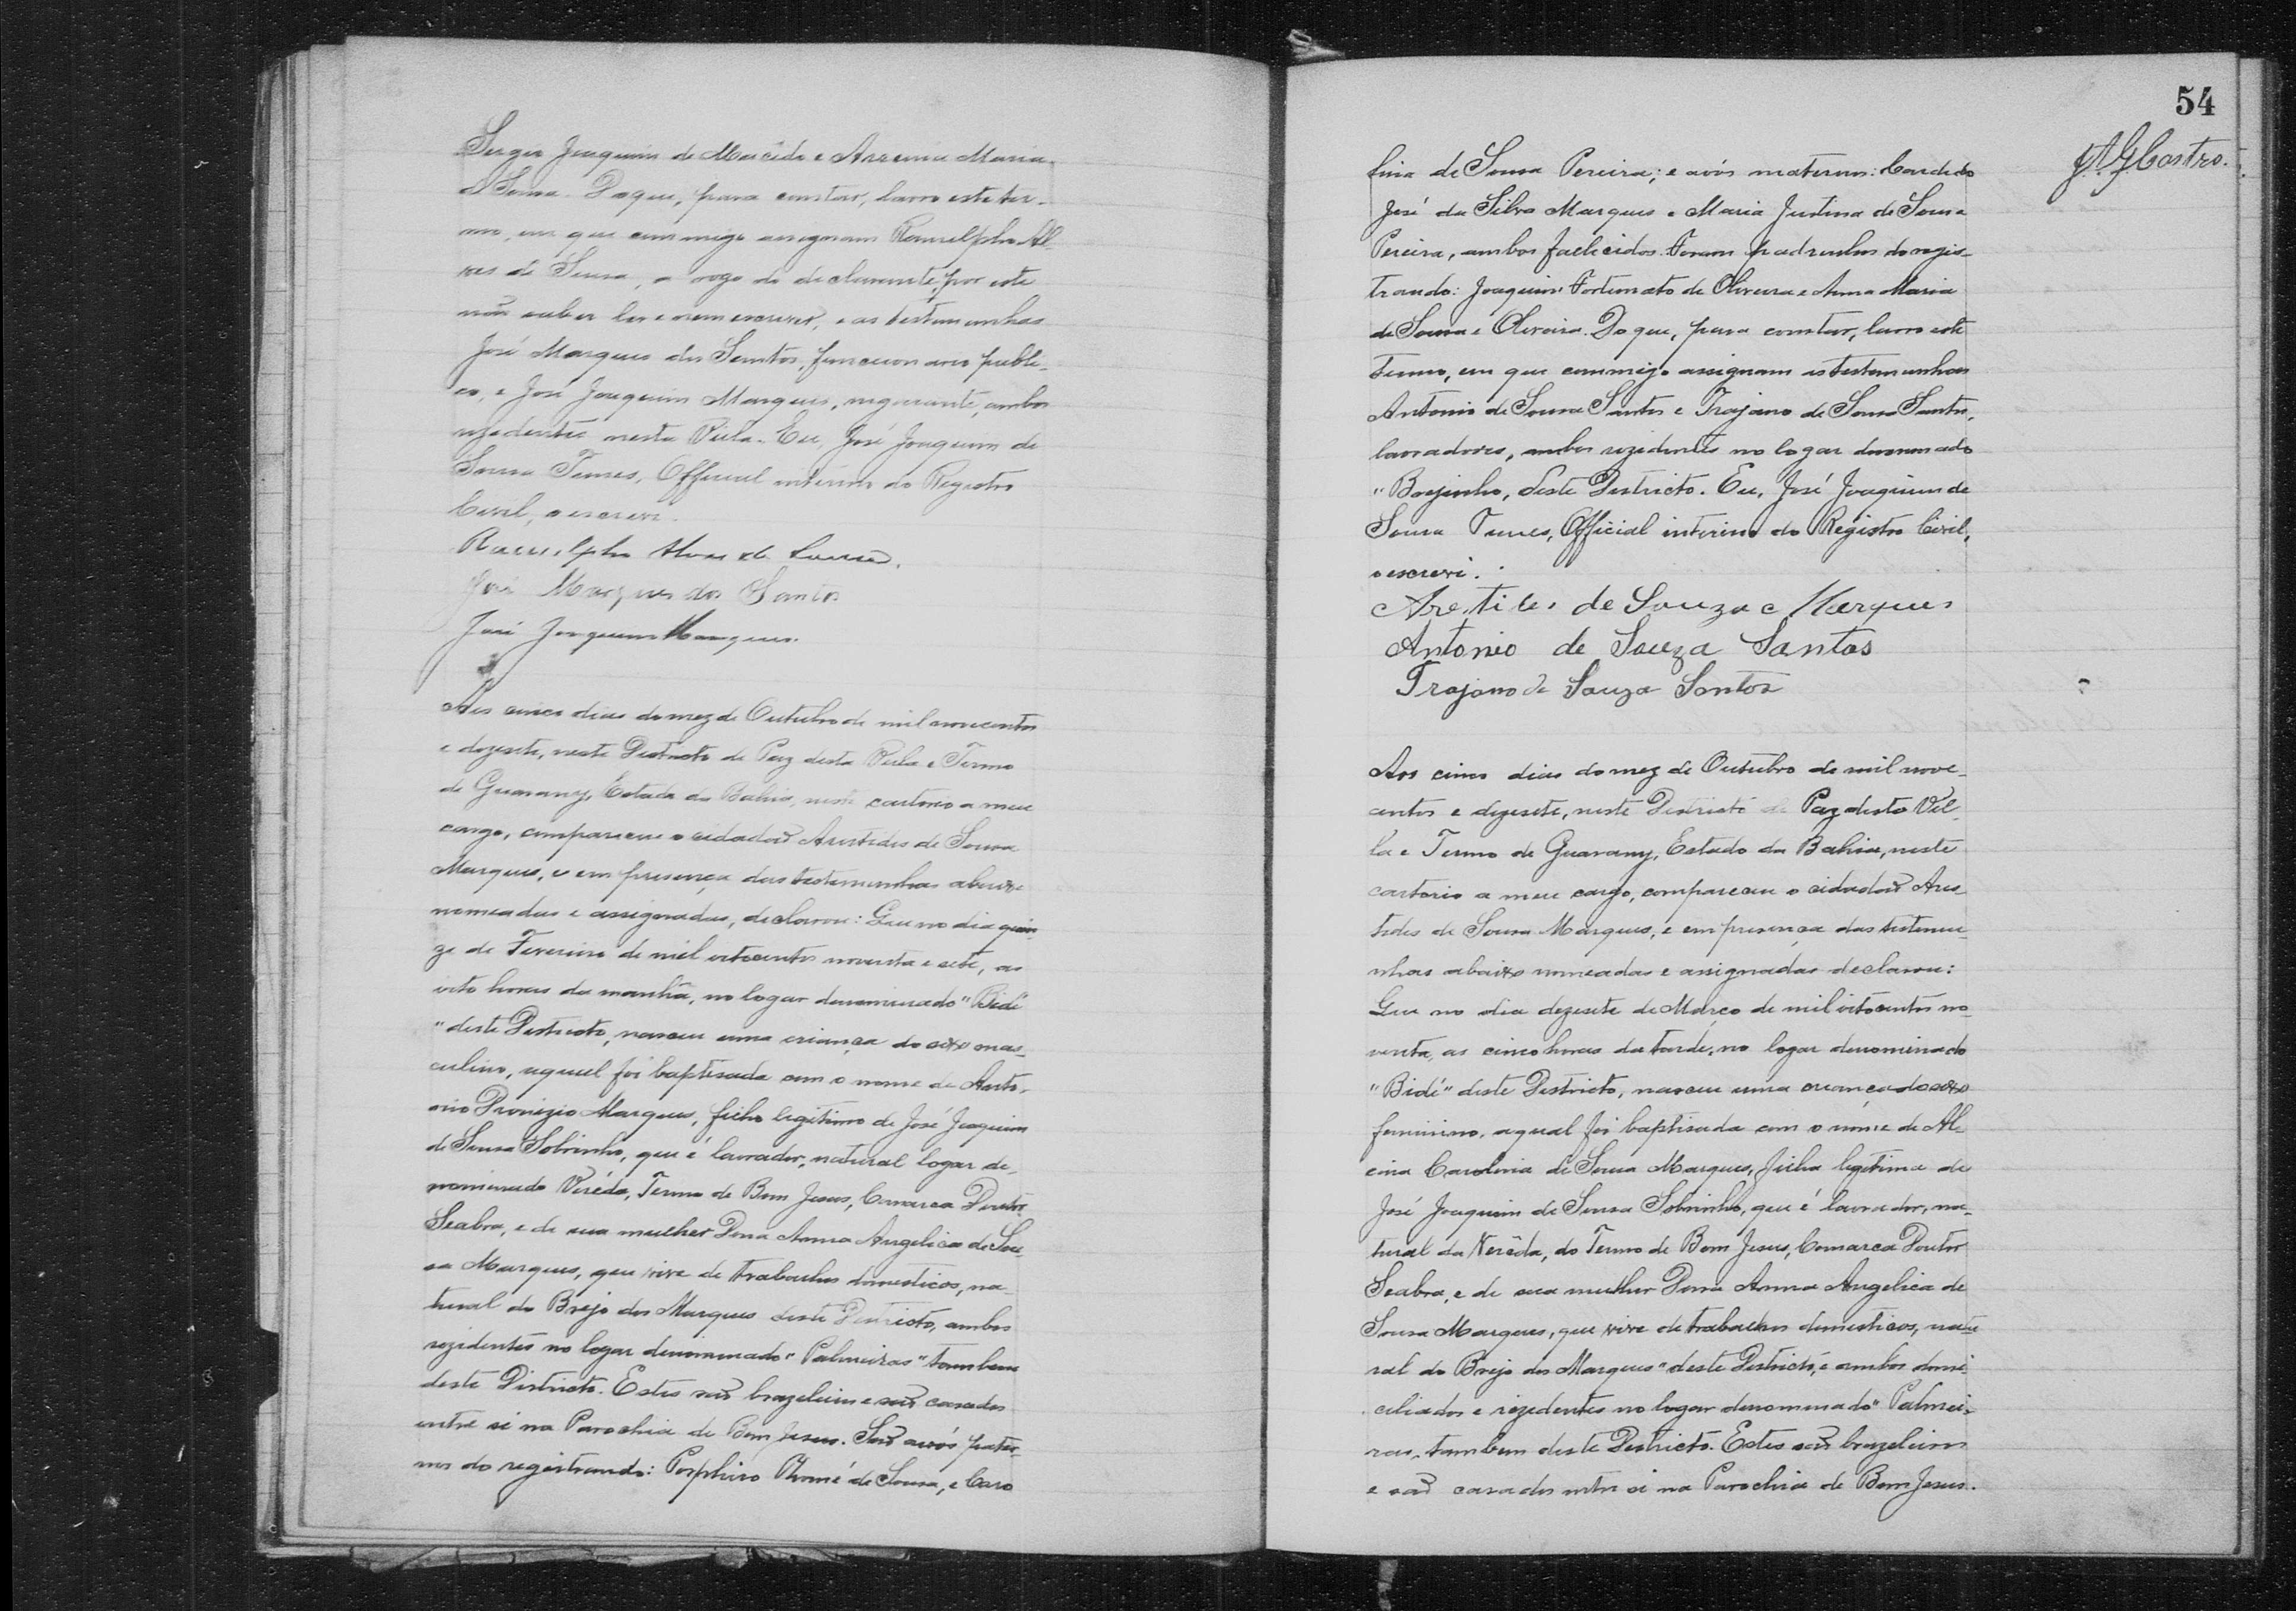 Joaquim de Macêdo e Maria
de Sousa. Do que, para constar, lavro este ter-
mo, em que commigo assignam Ranulpho Al-
ves de Sousa, a rogo do declarante, por este
não saber ler e nem escrever, e as testemunhas
José Marques dos Santos, funccionario publi-
co, e José Joaquim Marques, negociante, ambos
rezidentes nesta Villa. Eu, José Joaquim de
Sousa Tunes, Official interino do Registro
Civil, o escrevi.
Ranulpho Alves de Sousa.
José Marques dos Santos
José Joaquim Marques.
Aos cinco dias do mez de Outubro de mil novecentos
e dezesete, neste Districto de Paz desta Villa e Termo
de Guarany, Estado da Bahia, neste cartorio a meu
cargo, compareceu o cidadão Aristides de Sousa
Marques, e em presença das testemunhas abaixo
nomeadas e assignadas, declarou: Que no dia quin-
ze de Fevereiro de mil oitocentos noventa e sete, as
oito horas da manhã, no logar denominado "Bidé
" deste Districto, nasceu uma criança do sexo mas-
culino, aquel foi baptisada com o nome de Anto-
nio Marques, filho legitimo de José Joaquim
de Sousa Sobrinho, que é lavrador, natural logar de-
nominado Verêda, Termo de Bom Jesus, Comarca Doutor
Seabra, e de sua mulher Dona Anna Angelica de Sou-
sa Marques, que vive de trabalhos domesticos, na-
tural do Brejo dos Marques deste Districto, ambos
rezidentes no logar denominado "Palmeiras" tambem
deste Districto. Estes são brazeleiros e são casados
entre si na Parochia de Bom Jesus. São avós pater-
nos do registrando: Porphiro Thomé de Sousa, e Caro
54
fina de Sousa Pereira; e avós maternos: Candido
José da Silva Marques e Maria Justina de Sousa
Pereira, ambos fallecidos. Foram padrinhos do regis-
trando: Joaquim Fortunato de Oliveira e Anna Maria
de Sousa e Oliveira. Do que, para constar, lavro este
termo, em que commigo assignam as testemunhas
Antonio de Sousa Santos e Trajano de Sousa Santos,
lavradores, ambos rezidentes no logar denominado
"Brejinho, deste Districto. Eu, José Joaquim de
Sousa Tunes, Official interino do Registro Civil,
o escrevi.
de Souza e Marques
Antonio de Souza Santos
Trajano de Souza Santos
Aos cinco dias do mez de Outubro de mil nove-
centos e dezesete, neste Districto de Paz desta Vil-
la e Termo de Guarany, Estado da Bahia, neste
cartorio a meu cargo, compareceu o cidadão Aris-
tides de Sousa Marques, e em presença das testemu-
nhas abaixo nomeadas e assignadas declarou:
Que no dia dezesete de Março de mil oitocentos no-
venta, as cinco horas da tarde, no logar denominado
"Bidé" deste Districto, nasceu uma criança do sexo
feminino, aqual foi baptisada com o nome de Al-
cina Carolina de Sousa Marques, filha legitima de
José Joaquim de Sousa Sobrinho, que é lavrador, na-
tural da Verêda, do Termo de Bom Jesus, Comarca Doutor
Seabra, e de sua mulher Dona Anna Angelica de
Sousa Marques, que vive de trabalhos domesticos, natu-
ral do Brejo dos Marques" deste Districto, e ambos domi-
ciliados e rezidentes no logar denominado "Palmei-
ras, tambem deste Districto. Estes são brazeleiros
e são casados entre si na Parochia de Bom Jesus.